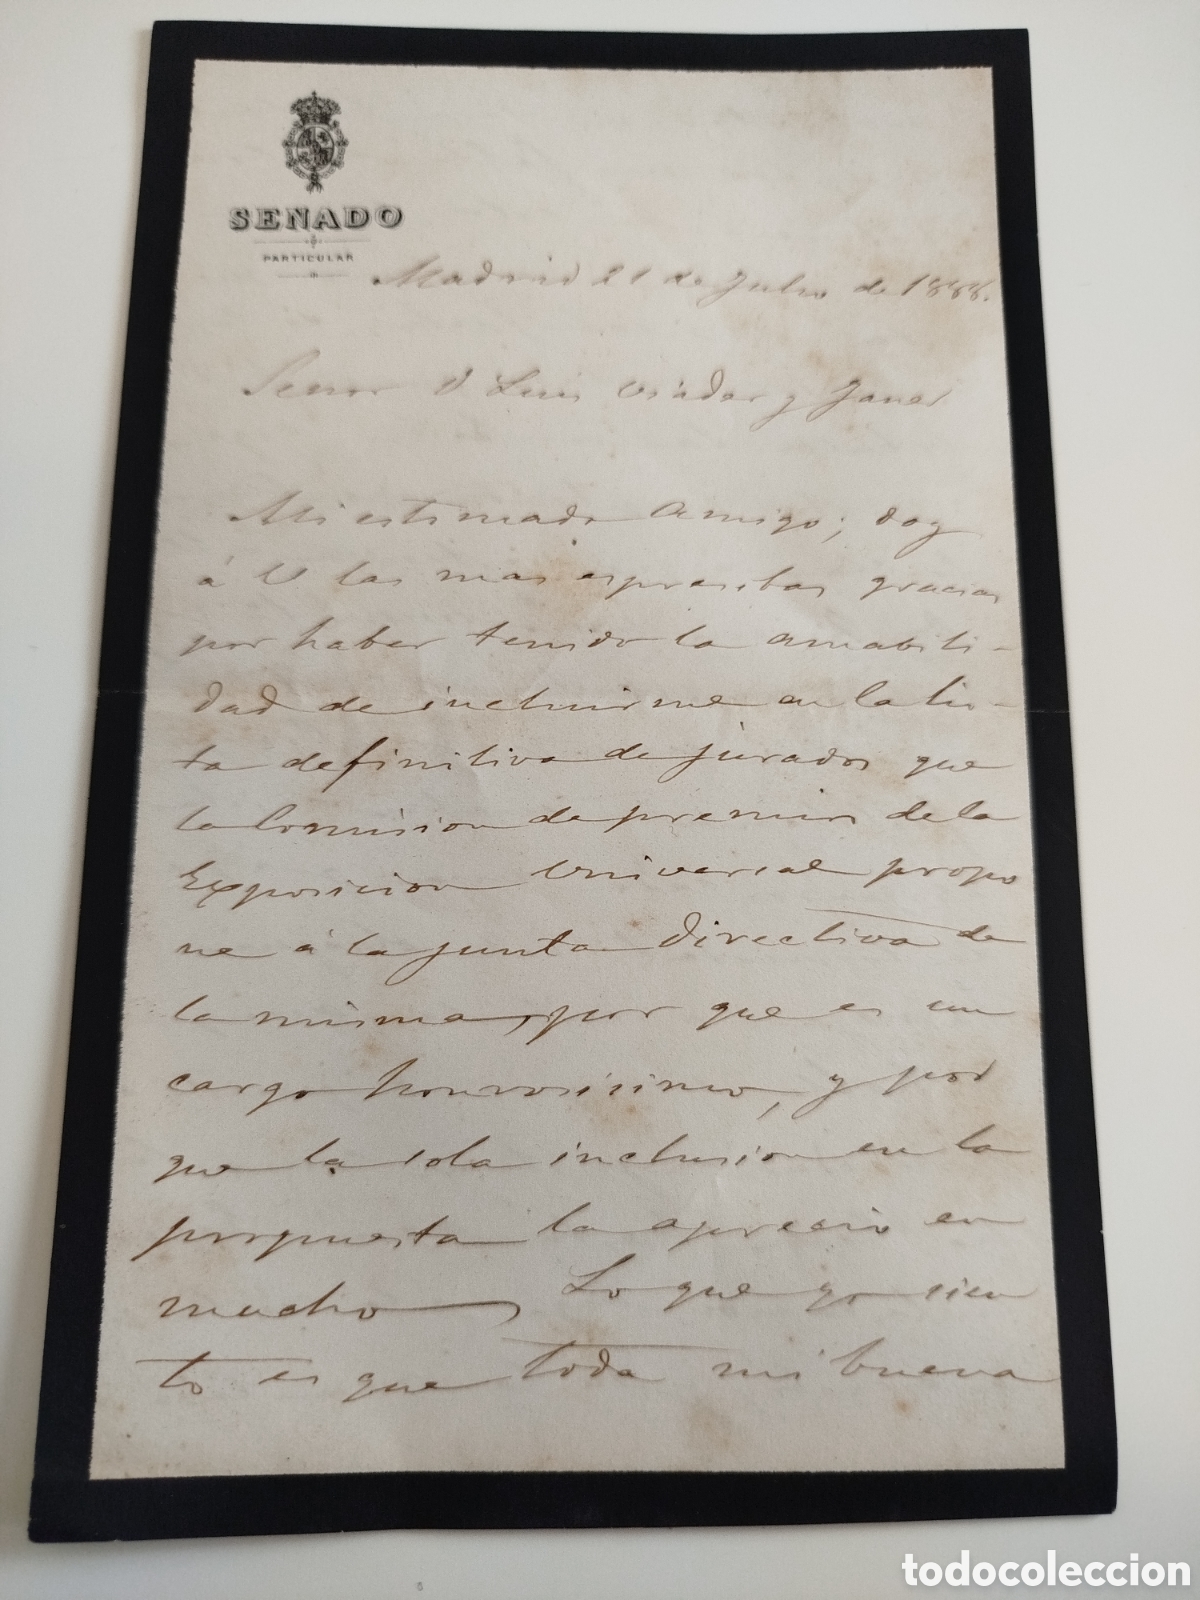 SENADO
PARTICULAR
Madrid 21 de Julio de 1888.
Señor D Luis Viader y Janer
Mi estimado amigo; doy
á V las mas espresibas gracias
por haber tenido la amabili-
dad de incluirme en la lis-
ta definitiva de jurados que
la Comision de premios de la
Exposicion Universal propo
ne á la junta directiva de
la misma, por que es un
cargo honrosisimo, y por
que la sola inclusion en la
propuesta la aprecio en
mucho, Lo que yo sien
to es que toda mi buena
todocoleccion